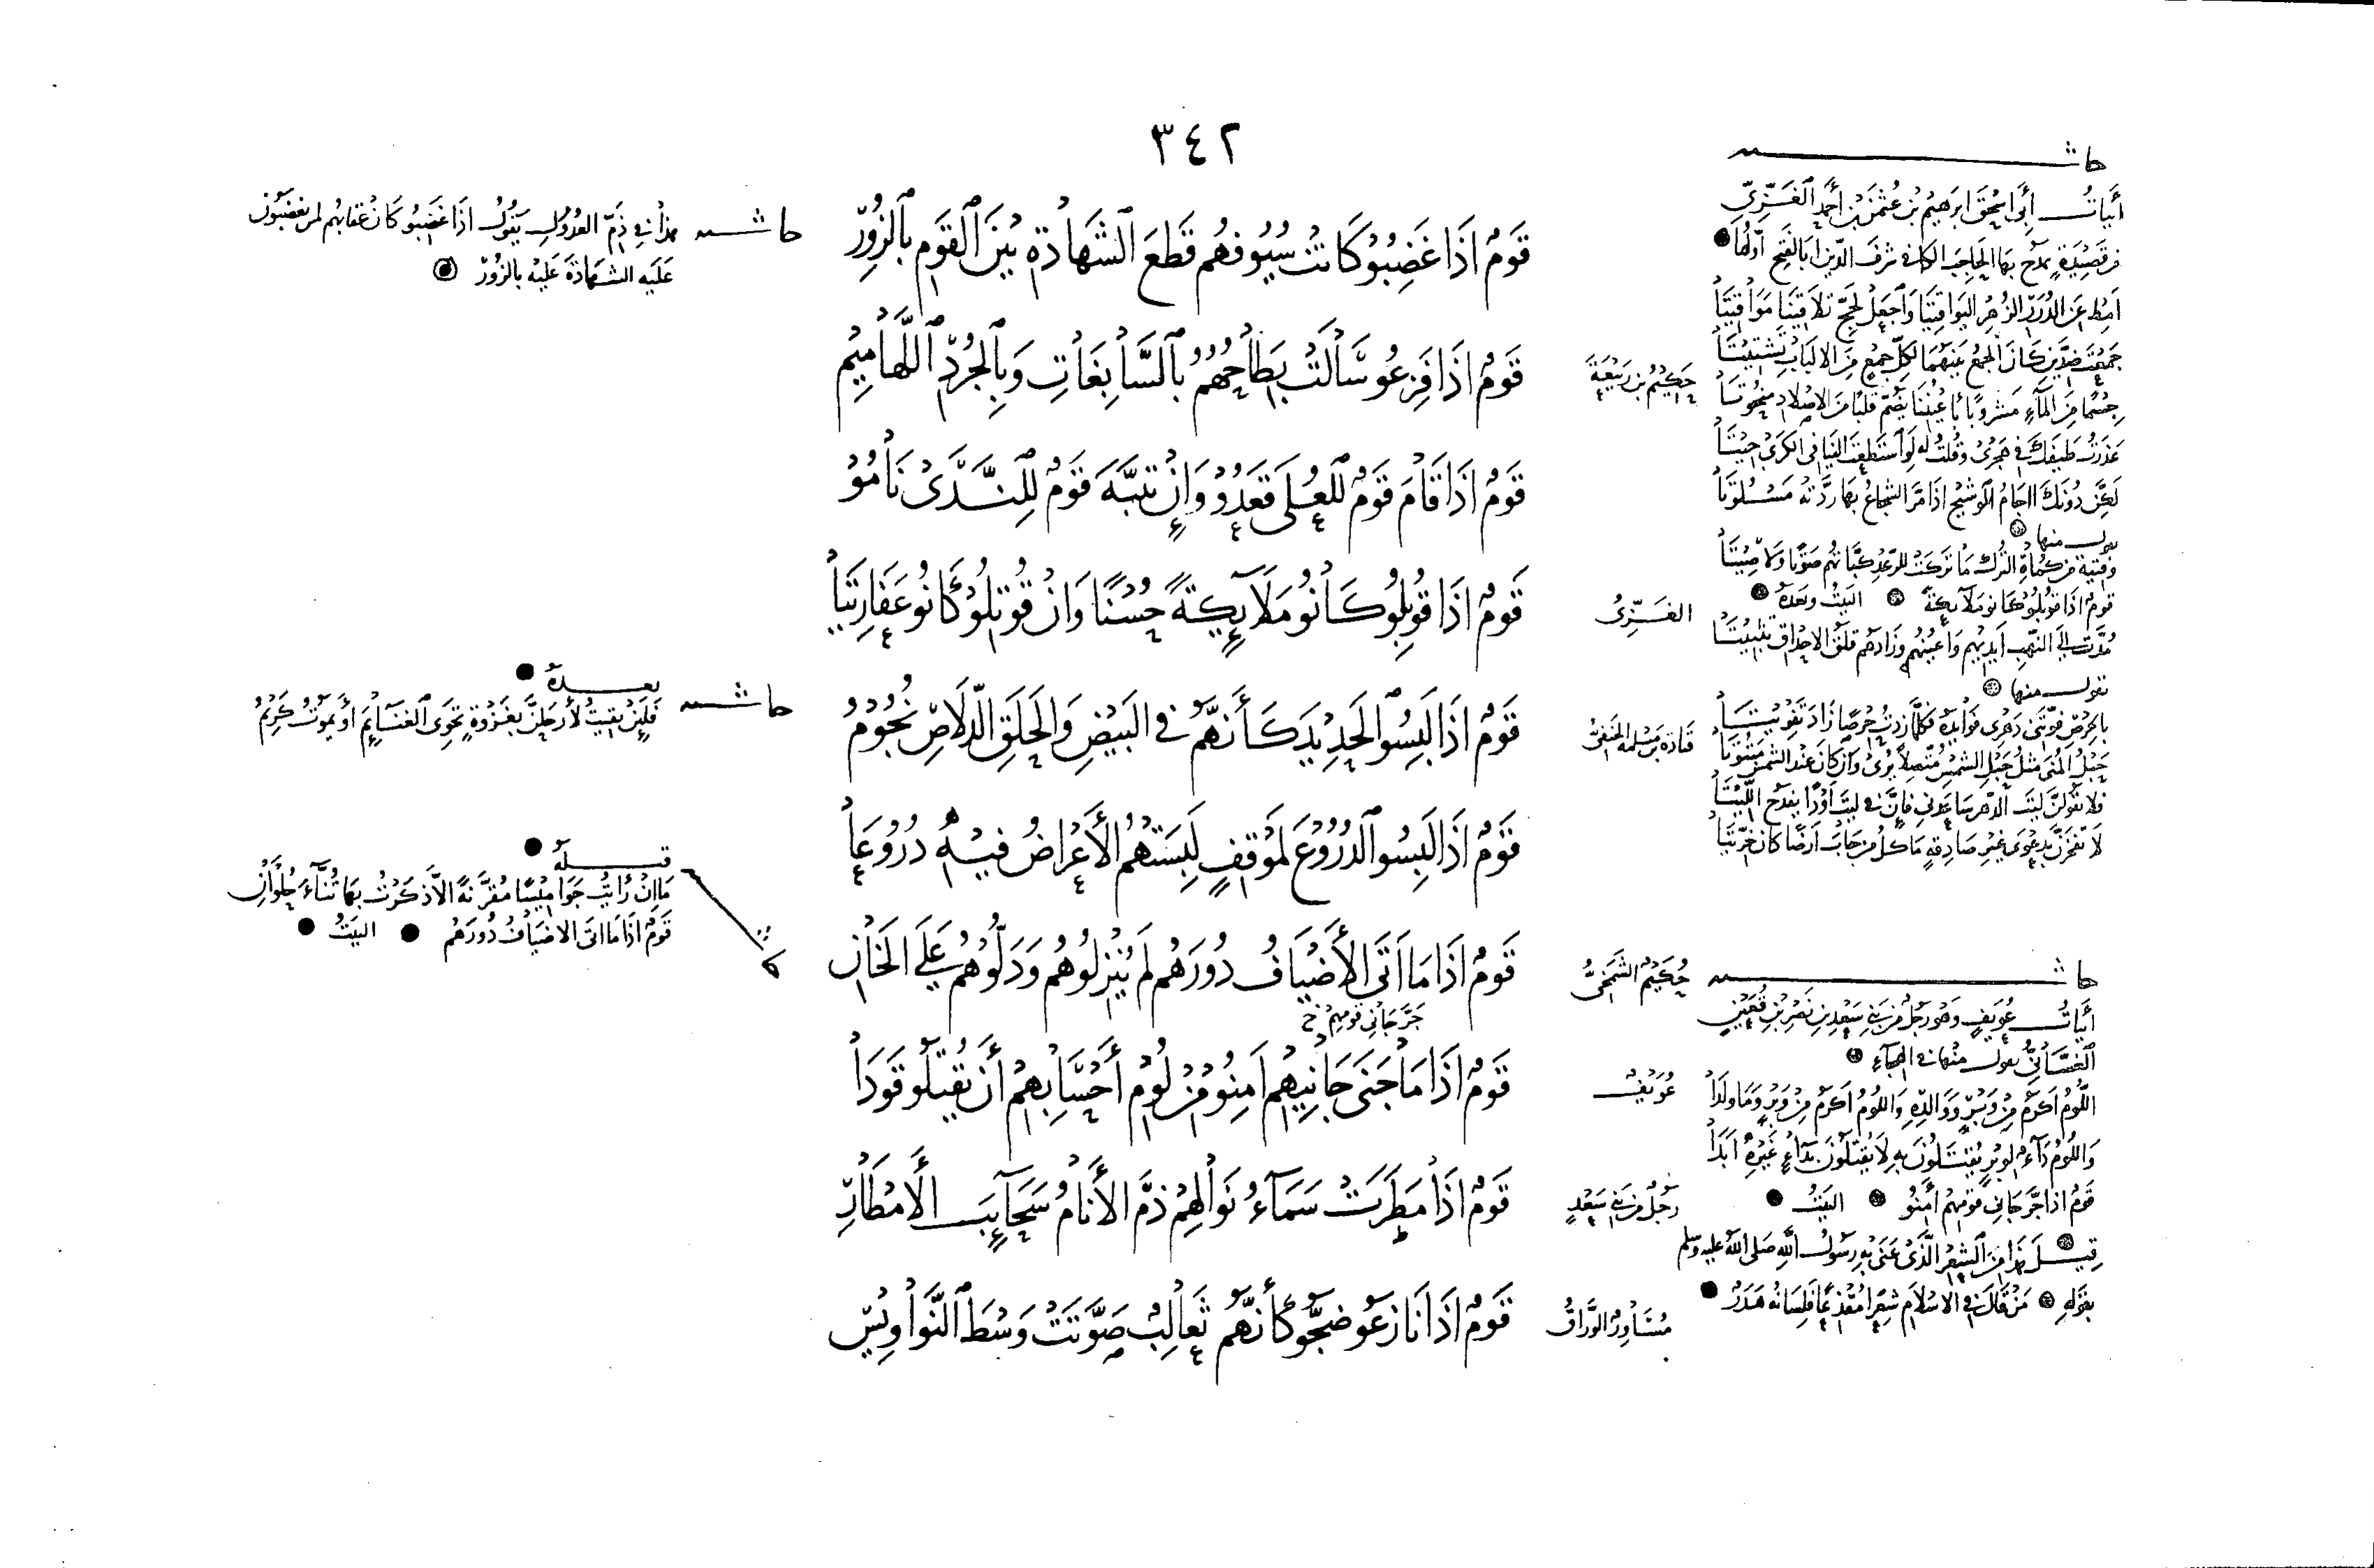 ٣٤٢
قَوْمٌ اذَا غَضِبُوُ كَانَتْ سُيُوفهُم قَطعَ الشَّهَادَةِ بَيْنَ القَومِ بالزُوْرِ
قَوْمٌ اذَا فَزِعُو سَّالَتْ بِطَاحُهُمُ بالسَّابِغَاتِ وَبِالجُرْدِ اللَّهَامِيْمُ
قَوْمٌ اذَا قَامَ قَوْمٌ للعُلَى قَعَدُوْ وَاِنْ تنبَّهَ قَوْمٌ لِلنَّدَىْ نَامُوْ
قَوْمٌ اذَا قُوْبِلُو كَانُو مَلَآئِكَةً حُسْنًا وَانْ قُوْتِلُوْ كَانُو عَفَارِيتَا
قَوْمٌ اذَا لَبِسُوا الحَدِيْدَ كَأَنهَّمْ في البَيْضِ وَالحَلَقِ الدّلَاصِ نُجُوْمُ
قَوْمٌ اذَا لَبِسُوا الدُّرُوْعَ لمَوْقِفٍ لَبِسَتْهُمُ الأَعْرَاضُ فيْهِ دُرُوْعَا
قَوْمٌ اذَا مَا اَتَى الأَضْيَافُ دُورَهُم لَم يُنْزِلُوهُم وَدَلُّوْهُمْ عَلَى الخَانِ
جَرَّ جَانِي قَومِهِمْ خ
قَوْمٌ اذَا مَا جَنَى جَانِيْهِم اَمِنُو مِنْ لُوْمِ أَحْسَابِهِمْ أَن يُقْتَلُو قوَدَا
قَوْمٌ اذَا مَطَرَتْ سَمَاءُ نَوَالهِمْ ذمَّ الأَنَامُ سَحَآئِبَ الأَمْطَارِ
قَوْمٌ اذَا نَازعَوْ ضَجُّوْ كَأَنهَّمْ ثَعَالِبٌ صَوَّتَتْ وَسْطَ النَّوَاوِيْسِ
حَكِيْمُ بن رَبيْعَةَ
الغَزِّىُ
قتادة بن مَسْلمهَ الحَنَفِىُّ
عُوَيْفُ
رَجُلٌ من بَنِي سَعْدٍ
مُسَاوِرُ الوَرَّاقُ
حاشـــــه
أَبيَاتُ أَبِى اسْحَقَ ابرَهيْمَ بن عُثمَنَ بن أحمَدِ الغَزِّىِّ
من قَصِيْدَةٍ يمدَحُ بهَا الحَاجِبَ الكافى شرَفَ الدّين ابَا الفَتحِ اَوَّلُهَا
اَمِط عَنِ الدُرَرِ الزُّهرِ اليَوَاقِيْتَا وَاجعَلْ لحَجّ تلَاقيْنَا مَوَاقيْتَا
جَمعْتَ ضدَّين كَانَ الجمعُ بَينهُمَا لِكلِّ جمْعٍ منَ الالبَابِ تشتيْتَا
جِسْمًا منَ المآءِ مَشروبًا بأَعيُننَا يَضُمُّ قلبًا منَ الاصْلادِ منحُوتَا
عَذَرتُ طَيفَكَ في هَجرِى وَقلتُ لهُ لَو اسْتَطعتَ الينَا في الكَرَى جِيْتَا
يقول منها
وَفتيَةٍ من كمُاةِ التُّركِ مَا ترَكتْ للرَّعدِ كَبَّاتُهم صَوتًا وَلَا صِيْتَا
قومٌ اذَا قوبلُو كَانو مَلآئكَةً البيْتُ وَبعدَهُ
مُدَّتْ الى النّهبِ اَيديهِم وَاَعيُنهُم وَزَادَهُم قلَقُ الاحدَاقِ تثبيْتَا
يقول منها
بالحرْصِ فَوّتنِى دَهْرِى فوَايدَهُ فكلَّمَا زِدتُ حرْصًا زَادَ تفوِيتَا
حَبْلُ المُنَى مثلُ حَبْلِ الشّمسِ مُتّصِلًا يُرَى وَان كَانَ عندَ الشّمسِ مَبتُوتَا
فلَا تقوْلنَّ ليتَ الدّهرَ سَاعَدَنى فاِنَّ في ليتَ اَودًا يقدَحُ اللّيْتَا
لَا تفخَرَنَّ بدَعْوَى غيْرِ صَادِقهٍ مَا كلُّ من جَابَ اَرضًا كانَ خِرّيتَا
حاشـــــه
أَبيَاتُ عُوَيفٍ وَهوَ رَجُلٌ من بَنى سَعْدِ بن نَصْرِ بن قُعَيْنٍ
يقول منهَا في الهجَآءِ
اللُّؤمُ اَكرَمُ مِنْ وَبْرٍ وَوَالدِهِ وَاللّؤمُ اَكرَمُ مِنْ وَبرٍ وَمَا وَلَدَا
وَاللّؤمُ دَآءٌ لوَبرٍ يُقتَلُونَ بهِ لَا يُقتَلُونَ بدَآءٍ غَيْرِهِ اَبَدَا
قَومٌ اذَا جَرَّ جَانِى قَومِهِمْ اَمِنُو البَيْتُ
قيــل هَذَا منَ الشِعرِ الَّذِىْ عَنَى بهِ رَسُولُ اللهِ صَلى اللهُ عَليه وسلم
بقَولهِ مَنْ قَالَ في الاسْلَامِ شِعْرًا مُقْذِعًا فَلِسَانهُ هَدَرٌ
حاشـــــه هَذَا في ذَمِّ العدُولِ يَقُولُ اذَا غَضِبُو كَانَ عقابهُم لمن يغضَبُونَ
عَلَيهِ الشهَادَةَ عَلَيْهِ بالزُّورِ
حاشـــــه بعــــدهُ
فَلَئِنْ بَقيتُ لأَرحَلنَّ بغَزْوَةٍ تحوِى الغنَآئِمَ أو يَموْتَ كَرِيْمُ
قبــــلهُ
مَا اِنْ رَأَيتُ جَوَامِيْسًا مُقرَّنَةً الَّا ذَكَرْتُ بهَا ثنَآءَ حُلْوَانِ
قَوْمٌ اذَا مَا اتَى الاضيَافُ دُورَهُم البَيْتُ